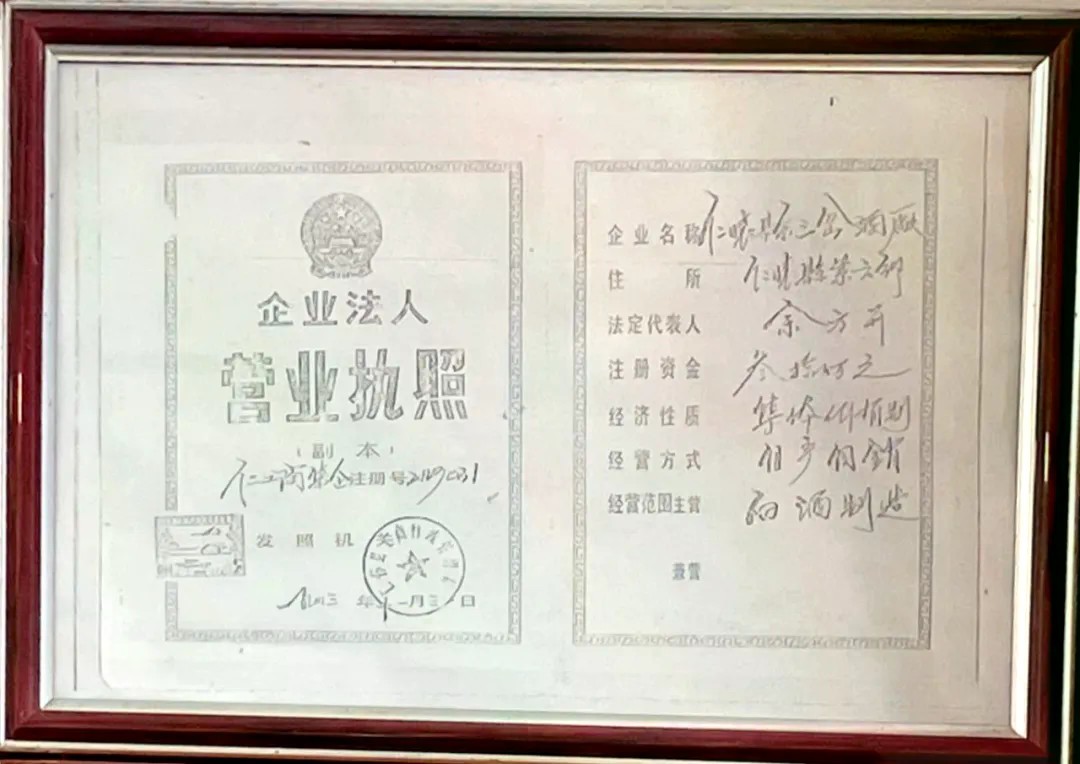 企业法人
营业执照
(副本)
仁工商 企注册号
发照机关
年十一月三 日
企业名称 仁怀县 酒厂
住所 仁怀县
法定代表人 余方开
注册资金 叁拾万元
经济性质 集体
经营方式 自产自销
经营范围主营 白酒制造
兼营